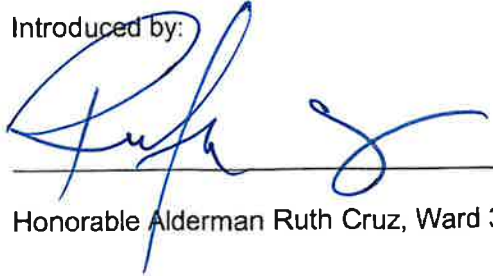 Introduced by:
Honorable Alderman Ruth Cruz, Ward 3